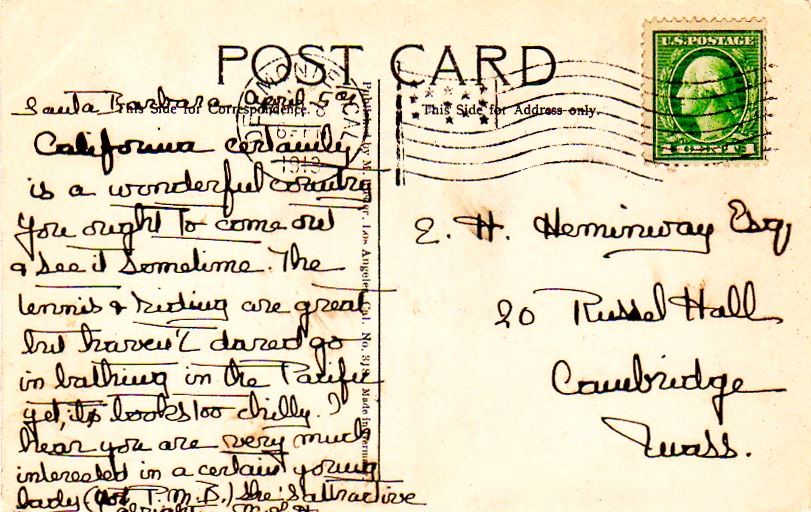 POST CARD
This Side for Correspondence.
This Side for Address only.
U.S. POSTAGE
1913
CAL
Santa Barbara April 5th
California certainly
is a wonderful country
You ought to come out
& see it sometime. The
tennis & riding are great
but haven't dared go
in bathing in the Pacific
yet, its looks too chilly. I
hear you are very much
interested in a certain young
lady (not P.M.B.) She's attractive
alright
E. H. Heminway Esq,
20 Russel Hall
Cambridge
Mass.
Los Angeles, Cal. No. Made in Germany